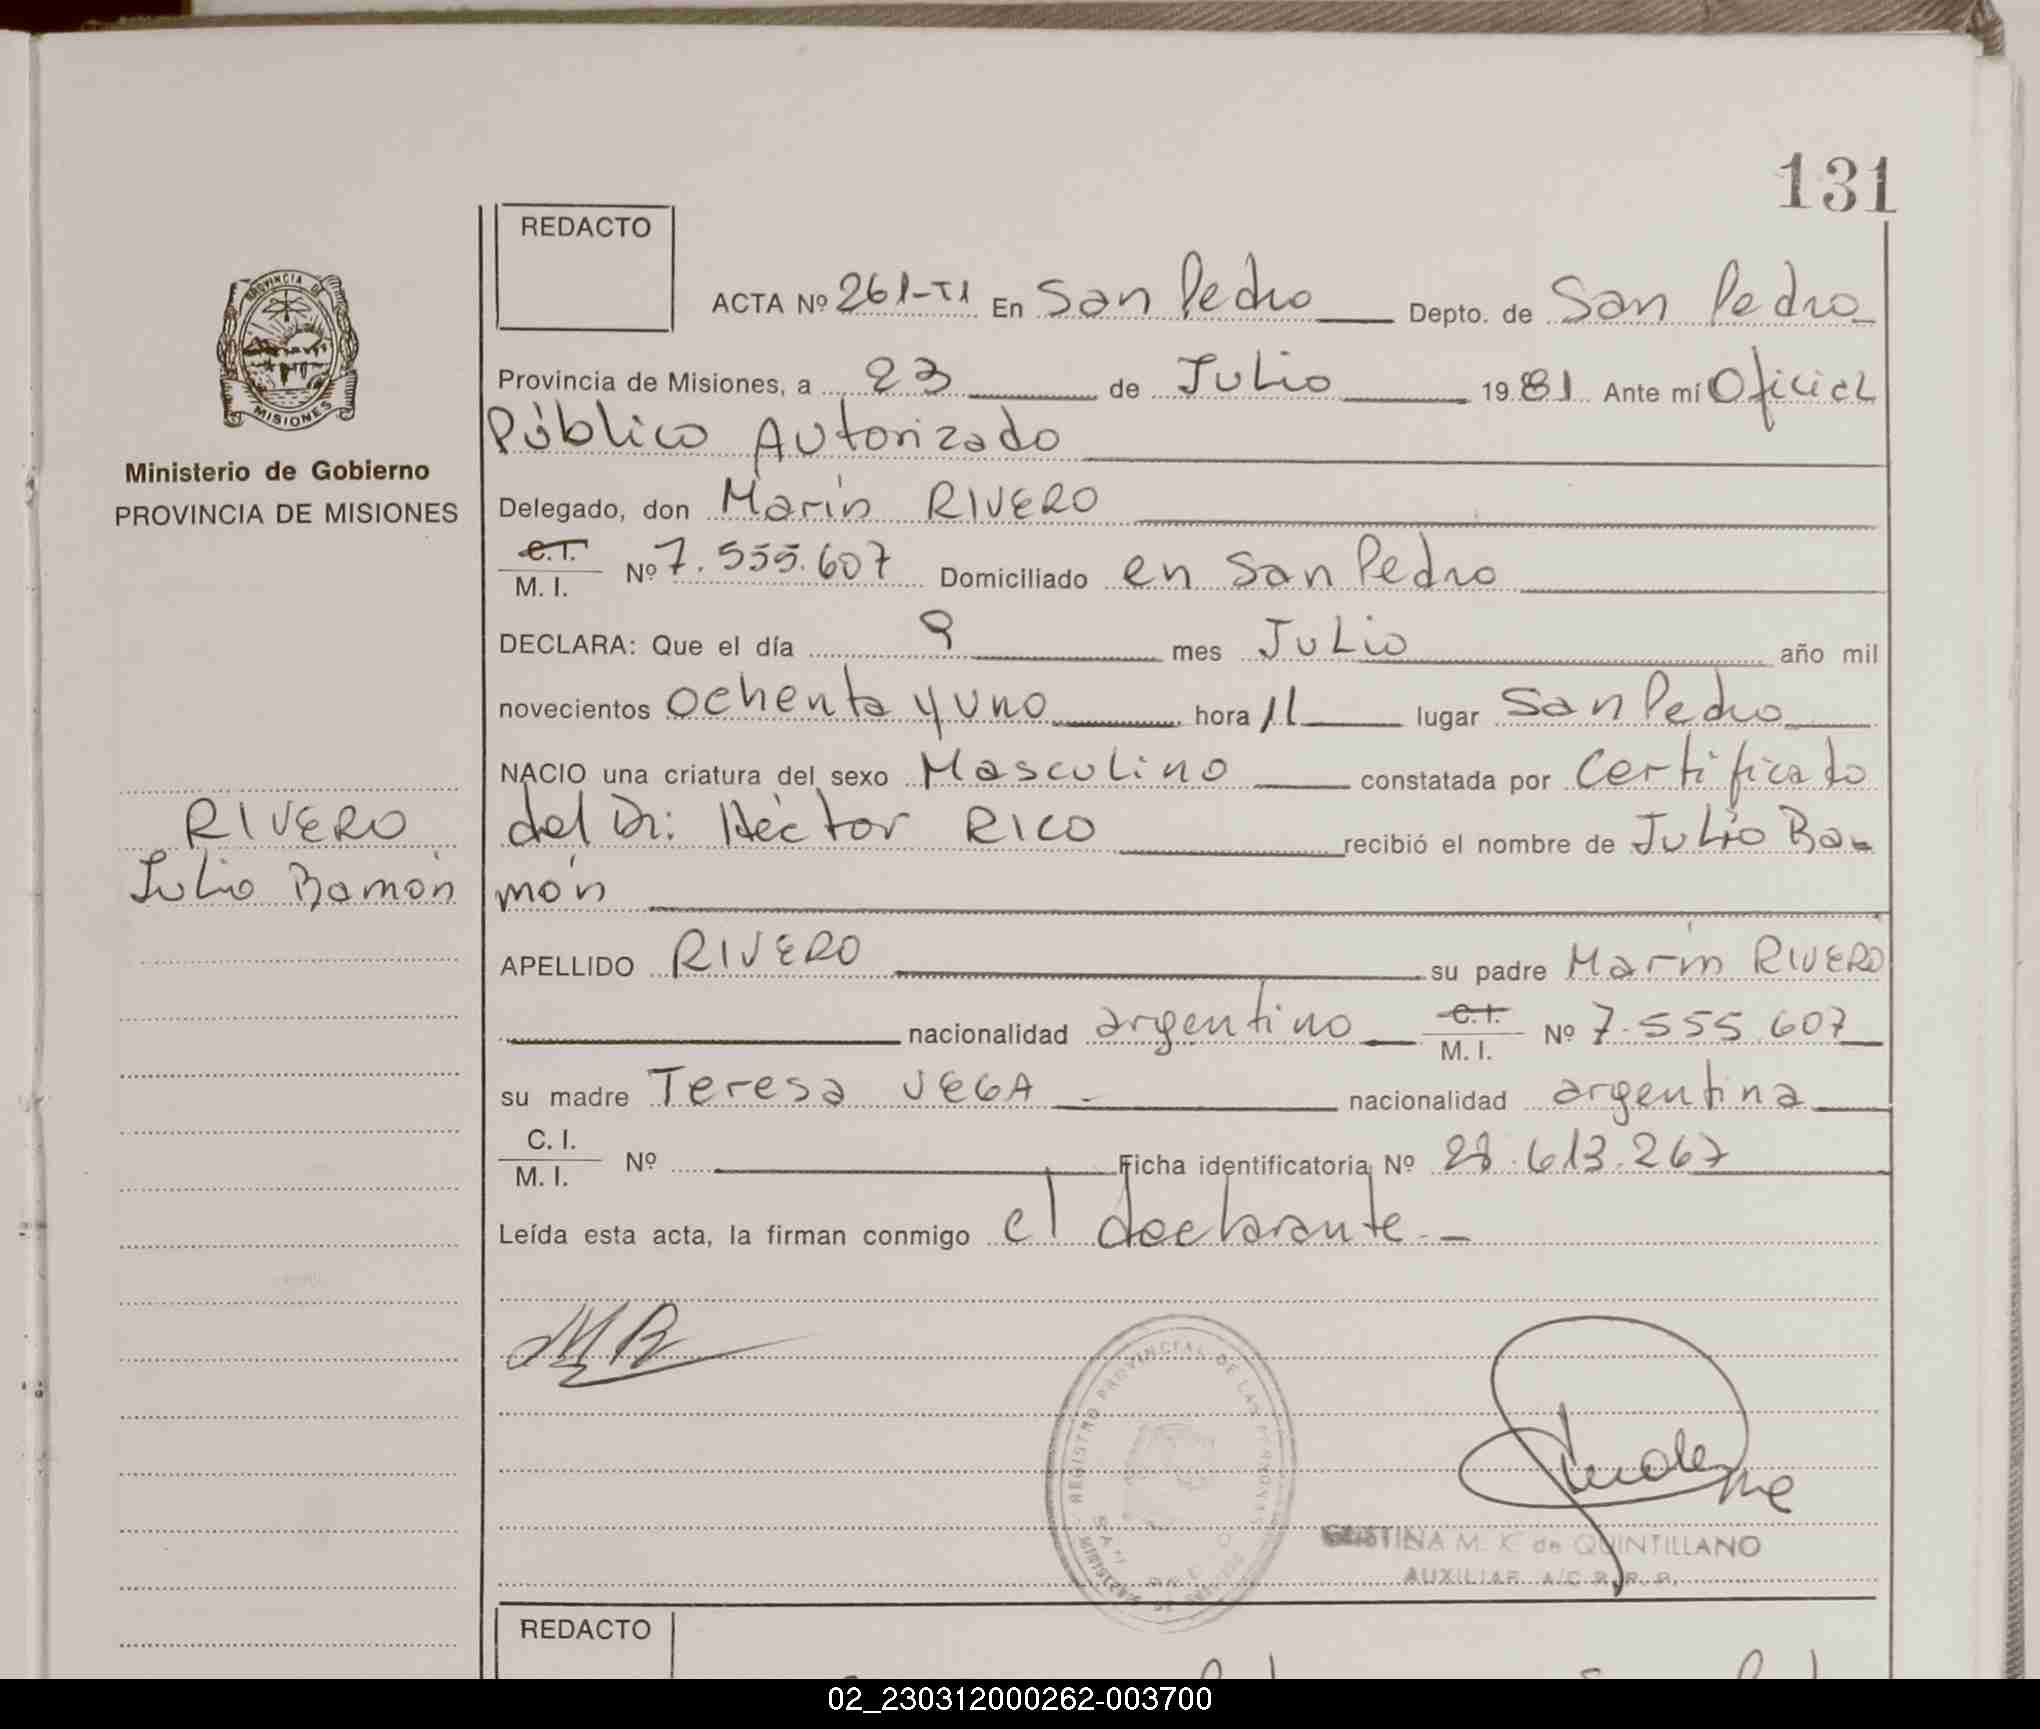 131
REDACTO
ACTA Nº 261-T1 En San Pedro Depto. de San Pedro
PROVINCIA DE MISIONES
Provincia de Misiones, a 23 de Julio 1981 Ante mí Oficial
Público Autorizado
Ministerio de Gobierno
PROVINCIA DE MISIONES
Delegado, don Marín RIVERO
C.I. M. I. Nº 7.555.607 Domiciliado en San Pedro
DECLARA: Que el día 9 mes Julio año mil
novecientos ochenta y uno hora 11 lugar San Pedro
NACIO una criatura del sexo Masculino constatada por Certificado
RIVERO
del Dr: Héctor RICO recibió el nombre de Julio Ra-
Julio Ramón
món
APELLIDO RIVERO su padre Marín RIVERO
nacionalidad argentino C.I. M. I. Nº 7.555.607
su madre Teresa VEGA nacionalidad argentina
C. I. M. I. Nº Ficha identificatoria Nº 28.613.267
Leída esta acta, la firman conmigo el declarante.-
MR
REGISTRO PROVINCIAL DE LAS PERSONAS
M. K. de QUINTILLANO
AUXILIAR A/C R. P. P.
REDACTO
02_230312000262-003700